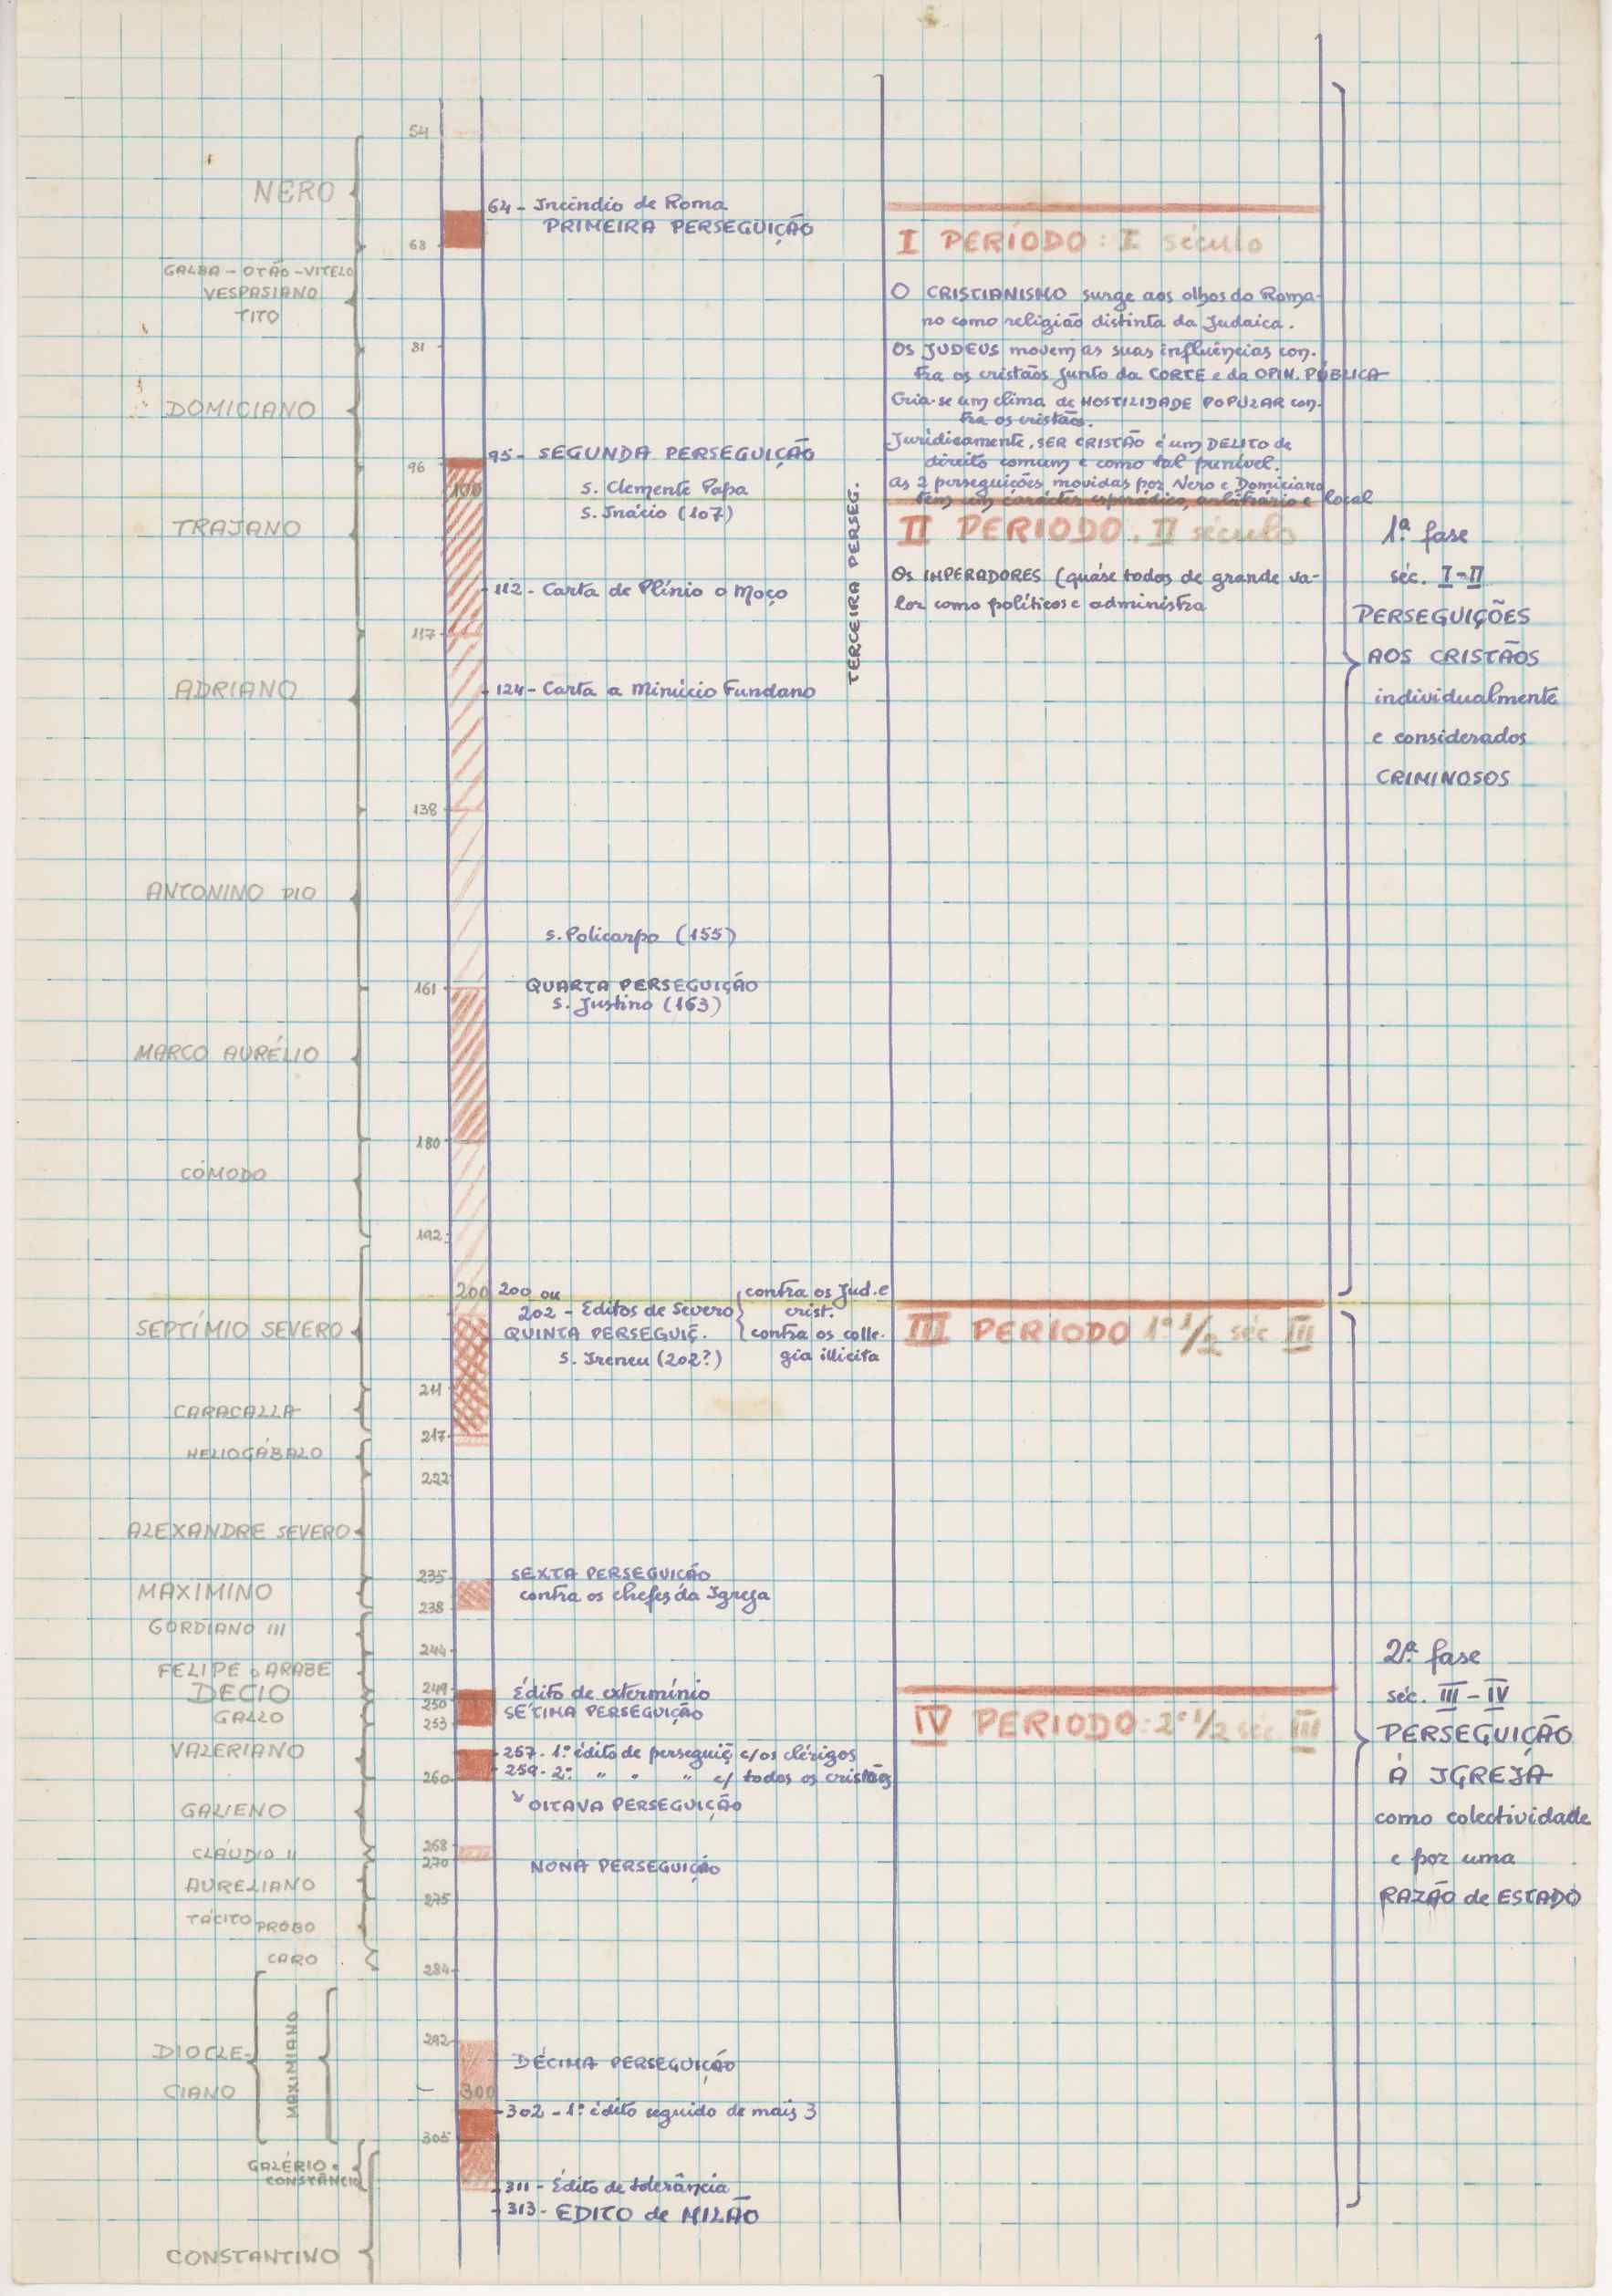 54
NERO
68
GALBA - OTÃO - VITELO
VESPASIANO
TITO
81
DOMICIANO
96
100
TRAJANO
117
ADRIANO
138
ANTONINO PIO
161
MARCO AURÉLIO
180
CÓMODO
192
200
SEPTÍMIO SEVERO
211
CARACALLA
217
HELIOGÁBALO
222
ALEXANDRE SEVERO
235
MAXIMINO
238
GORDIANO III
244
FELIPE o ARABE
249
DECIO
250
GALLO
253
VALERIANO
260
GALIENO
268
CLÁUDIO II
270
AURELIANO
275
TÁCITO PROBO
CARO
284
DIOCLE-
CIANO
MAXIMIANO
292
300
305
GALÉRIO e
CONSTÂNCIO
CONSTANTINO
64 - Incêndio de Roma
PRIMEIRA PERSEGUIÇÃO
95 - SEGUNDA PERSEGUIÇÃO
S. Clemente Papa
S. Inácio (107)
112 - Carta de Plínio o Moço
124 - Carta a Minúcio Fundano
TERCEIRA PERSEG.
S. Policarpo (155)
QUARTA PERSEGUIÇÃO
S. Justino (163)
200 ou
202 - Editos de Severo
contra os Jud. e
crist.
contra os colle-
gia illicita
QUINTA PERSEGUIÇ.
S. Ireneu (202?)
SEXTA PERSEGUIÇÃO
contra os chefes da Igreja
Édito de extermínio
SÉTIMA PERSEGUIÇÃO
257 - 1º édito de perseguiç c/os clérigos
259 - 2º " " " c/ todos os cristãos
OITAVA PERSEGUIÇÃO
NONA PERSEGUIÇÃO
DÉCIMA PERSEGUIÇÃO
302 - 1º édito seguido de mais 3
311 - Édito de tolerância
313 - EDITO de MILÃO
I PERÍODO: I século
O CRISTIANISMO surge aos olhos do Roma-
no como religião distinta da Judaica.
OS JUDEUS movem as suas influências con-
tra os cristãos junto da CORTE e da OPIN. PÚBLICA
Cria-se um clima de HOSTILIDADE POPULAR con-
tra os cristãos.
Jurídicamente, SER CRISTÃO é um DELITO de
direito comum e como tal punível.
As 2 perseguições movidas por Nero e Domiciano
tem um carácter esporádico, arbitrário e local
II PERIODO. II século
Os IMPERADORES (quáse todos de grande va-
lor como políticos e administra
III PERIODO 1ª 1/2 séc III
IV PERIODO: 2ª 1/2 séc III
1ª fase
séc. I-II
PERSEGUIÇÕES
AOS CRISTÃOS
individualmente
e considerados
CRIMINOSOS
2ª fase
séc. III-IV
PERSEGUIÇÃO
À IGREJA
como colectividade
e por uma
RAZÃO de ESTADO